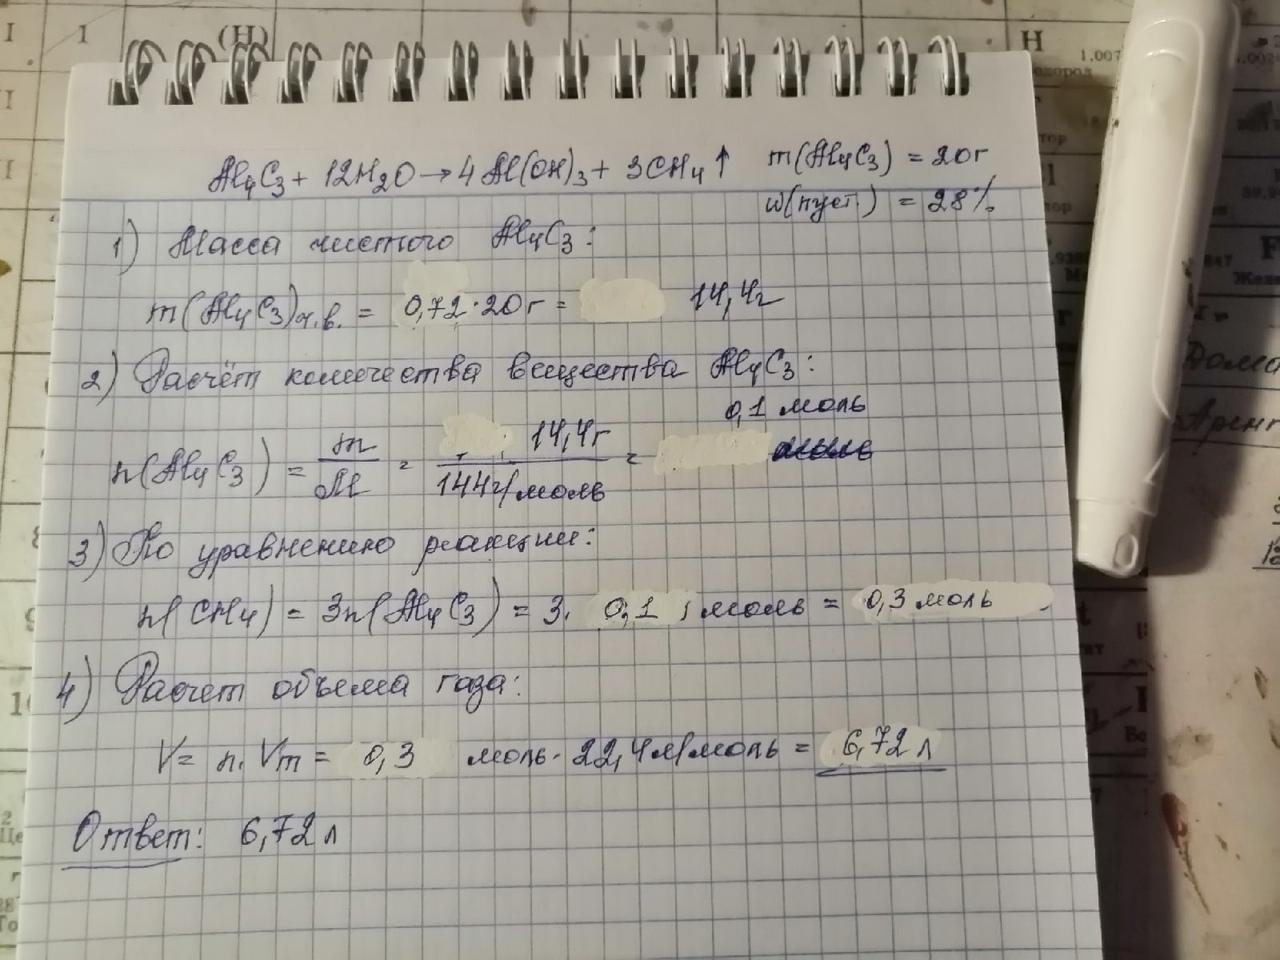 Al₄C₃ + 12H₂O → 4Al(OH)₃ + 3CH₄↑
m(Al₄C₃) = 20г
w(пуст) = 28%
1) Масса чистого Al₄C₃:
m(Al₄C₃)ч.в. = 0,72·20г = 14,4г
2) Расчёт количества вещества Al₄C₃:
0,1 моль
n(Al₄C₃) = m/M = 14,4г/144г/моль =
3) По уравнению реакции:
n(CH₄) = 3n(Al₄C₃) = 3·0,1 моль = 0,3 моль
4) Расчет объема газа:
V = n·Vm = 0,3 моль·22,4л/моль = 6,72 л
Ответ: 6,72 л
I
1
(H)
H
1.007